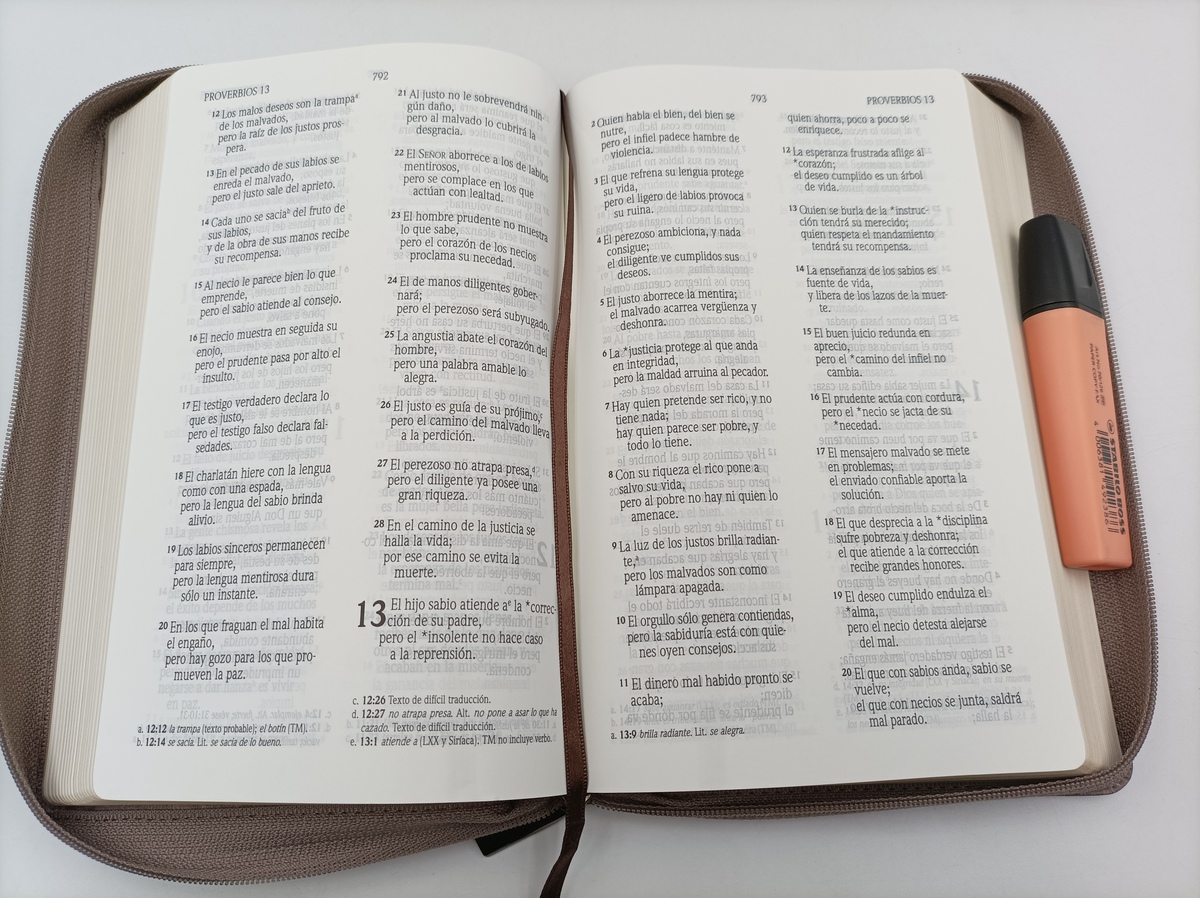 792
PROVERBIOS 13
12 Los malos deseos son la trampaª
de los malvados,
pero la raíz de los justos pros-
pera.
13 En el pecado de sus labios se
enreda el malvado,
pero el justo sale del aprieto.
14 Cada uno se saciaᵇ del fruto de
sus labios,
y de la obra de sus manos recibe
su recompensa.
15 Al necio le parece bien lo que
emprende,
pero el sabio atiende al consejo.
16 El necio muestra en seguida su
enojo,
pero el prudente pasa por alto el
insulto.
17 El testigo verdadero declara lo
que es justo,
pero el testigo falso declara fal-
sedades.
18 El charlatán hiere con la lengua
como con una espada,
pero la lengua del sabio brinda
alivio.
19 Los labios sinceros permanecen
para siempre,
pero la lengua mentirosa dura
sólo un instante.
20 En los que fraguan el mal habita
el engaño,
pero hay gozo para los que pro-
mueven la paz.
21 Al justo no le sobrevendrá nin-
gún daño,
pero al malvado lo cubrirá la
desgracia.
22 El SEÑOR aborrece a los de labios
mentirosos,
pero se complace en los que
actúan con lealtad.
23 El hombre prudente no muestra
lo que sabe,
pero el corazón de los necios
proclama su necedad.
24 El de manos diligentes gober-
nará;
pero el perezoso será subyugado.
25 La angustia abate el corazón del
hombre,
pero una palabra amable lo
alegra.
26 El justo es guía de su prójimo,ᶜ
pero el camino del malvado lleva
a la perdición.
27 El perezoso no atrapa presa,ᵈ
pero el diligente ya posee una
gran riqueza.
28 En el camino de la justicia se
halla la vida;
por ese camino se evita la
muerte.
13 El hijo sabio atiende aᵉ la *correc-
ción de su padre,
pero el *insolente no hace caso
a la reprensión.
a. 12:12 la trampa (texto probable); el botín (TM).
b. 12:14 se sacia. Lit. se sacia de lo bueno.
c. 12:26 Texto de difícil traducción.
d. 12:27 no atrapa presa. Alt. no pone a asar lo que ha
cazado. Texto de difícil traducción.
e. 13:1 atiende a (LXX y Siríaca). TM no incluye verbo.
793
PROVERBIOS 13
2 Quien habla el bien, del bien se
nutre,
pero el infiel padece hambre de
violencia.
3 El que refrena su lengua protege
su vida,
pero el ligero de labios provoca
su ruina.
4 El perezoso ambiciona, y nada
consigue;
el diligente ve cumplidos sus
deseos.
5 El justo aborrece la mentira;
el malvado acarrea vergüenza y
deshonra.
6 La *justicia protege al que anda
en integridad,
pero la maldad arruina al pecador.
7 Hay quien pretende ser rico, y no
tiene nada;
hay quien parece ser pobre, y
todo lo tiene.
8 Con su riqueza el rico pone a
salvo su vida,
pero al pobre no hay ni quien lo
amenace.
9 La luz de los justos brilla radian-
te,ª
pero los malvados son como
lámpara apagada.
10 El orgullo sólo genera contiendas,
pero la sabiduría está con quie-
nes oyen consejos.
11 El dinero mal habido pronto se
acaba;
quien ahorra, poco a poco se
enriquece.
12 La esperanza frustrada aflige al
*corazón;
el deseo cumplido es un árbol
de vida.
13 Quien se burla de la *instruc-
ción tendrá su merecido;
quien respeta el mandamiento
tendrá su recompensa.
14 La enseñanza de los sabios es
fuente de vida,
y libera de los lazos de la muer-
te.
15 El buen juicio redunda en
aprecio,
pero el *camino del infiel no
cambia.
16 El prudente actúa con cordura,
pero el *necio se jacta de su
*necedad.
17 El mensajero malvado se mete
en problemas;
el enviado confiable aporta la
solución.
18 El que desprecia a la *disciplina
sufre pobreza y deshonra;
el que atiende a la corrección
recibe grandes honores.
19 El deseo cumplido endulza el
*alma,
pero el necio detesta alejarse
del mal.
20 El que con sabios anda, sabio se
vuelve;
el que con necios se junta, saldrá
mal parado.
a. 13:9 brilla radiante. Lit. se alegra.
STABILO BOSS